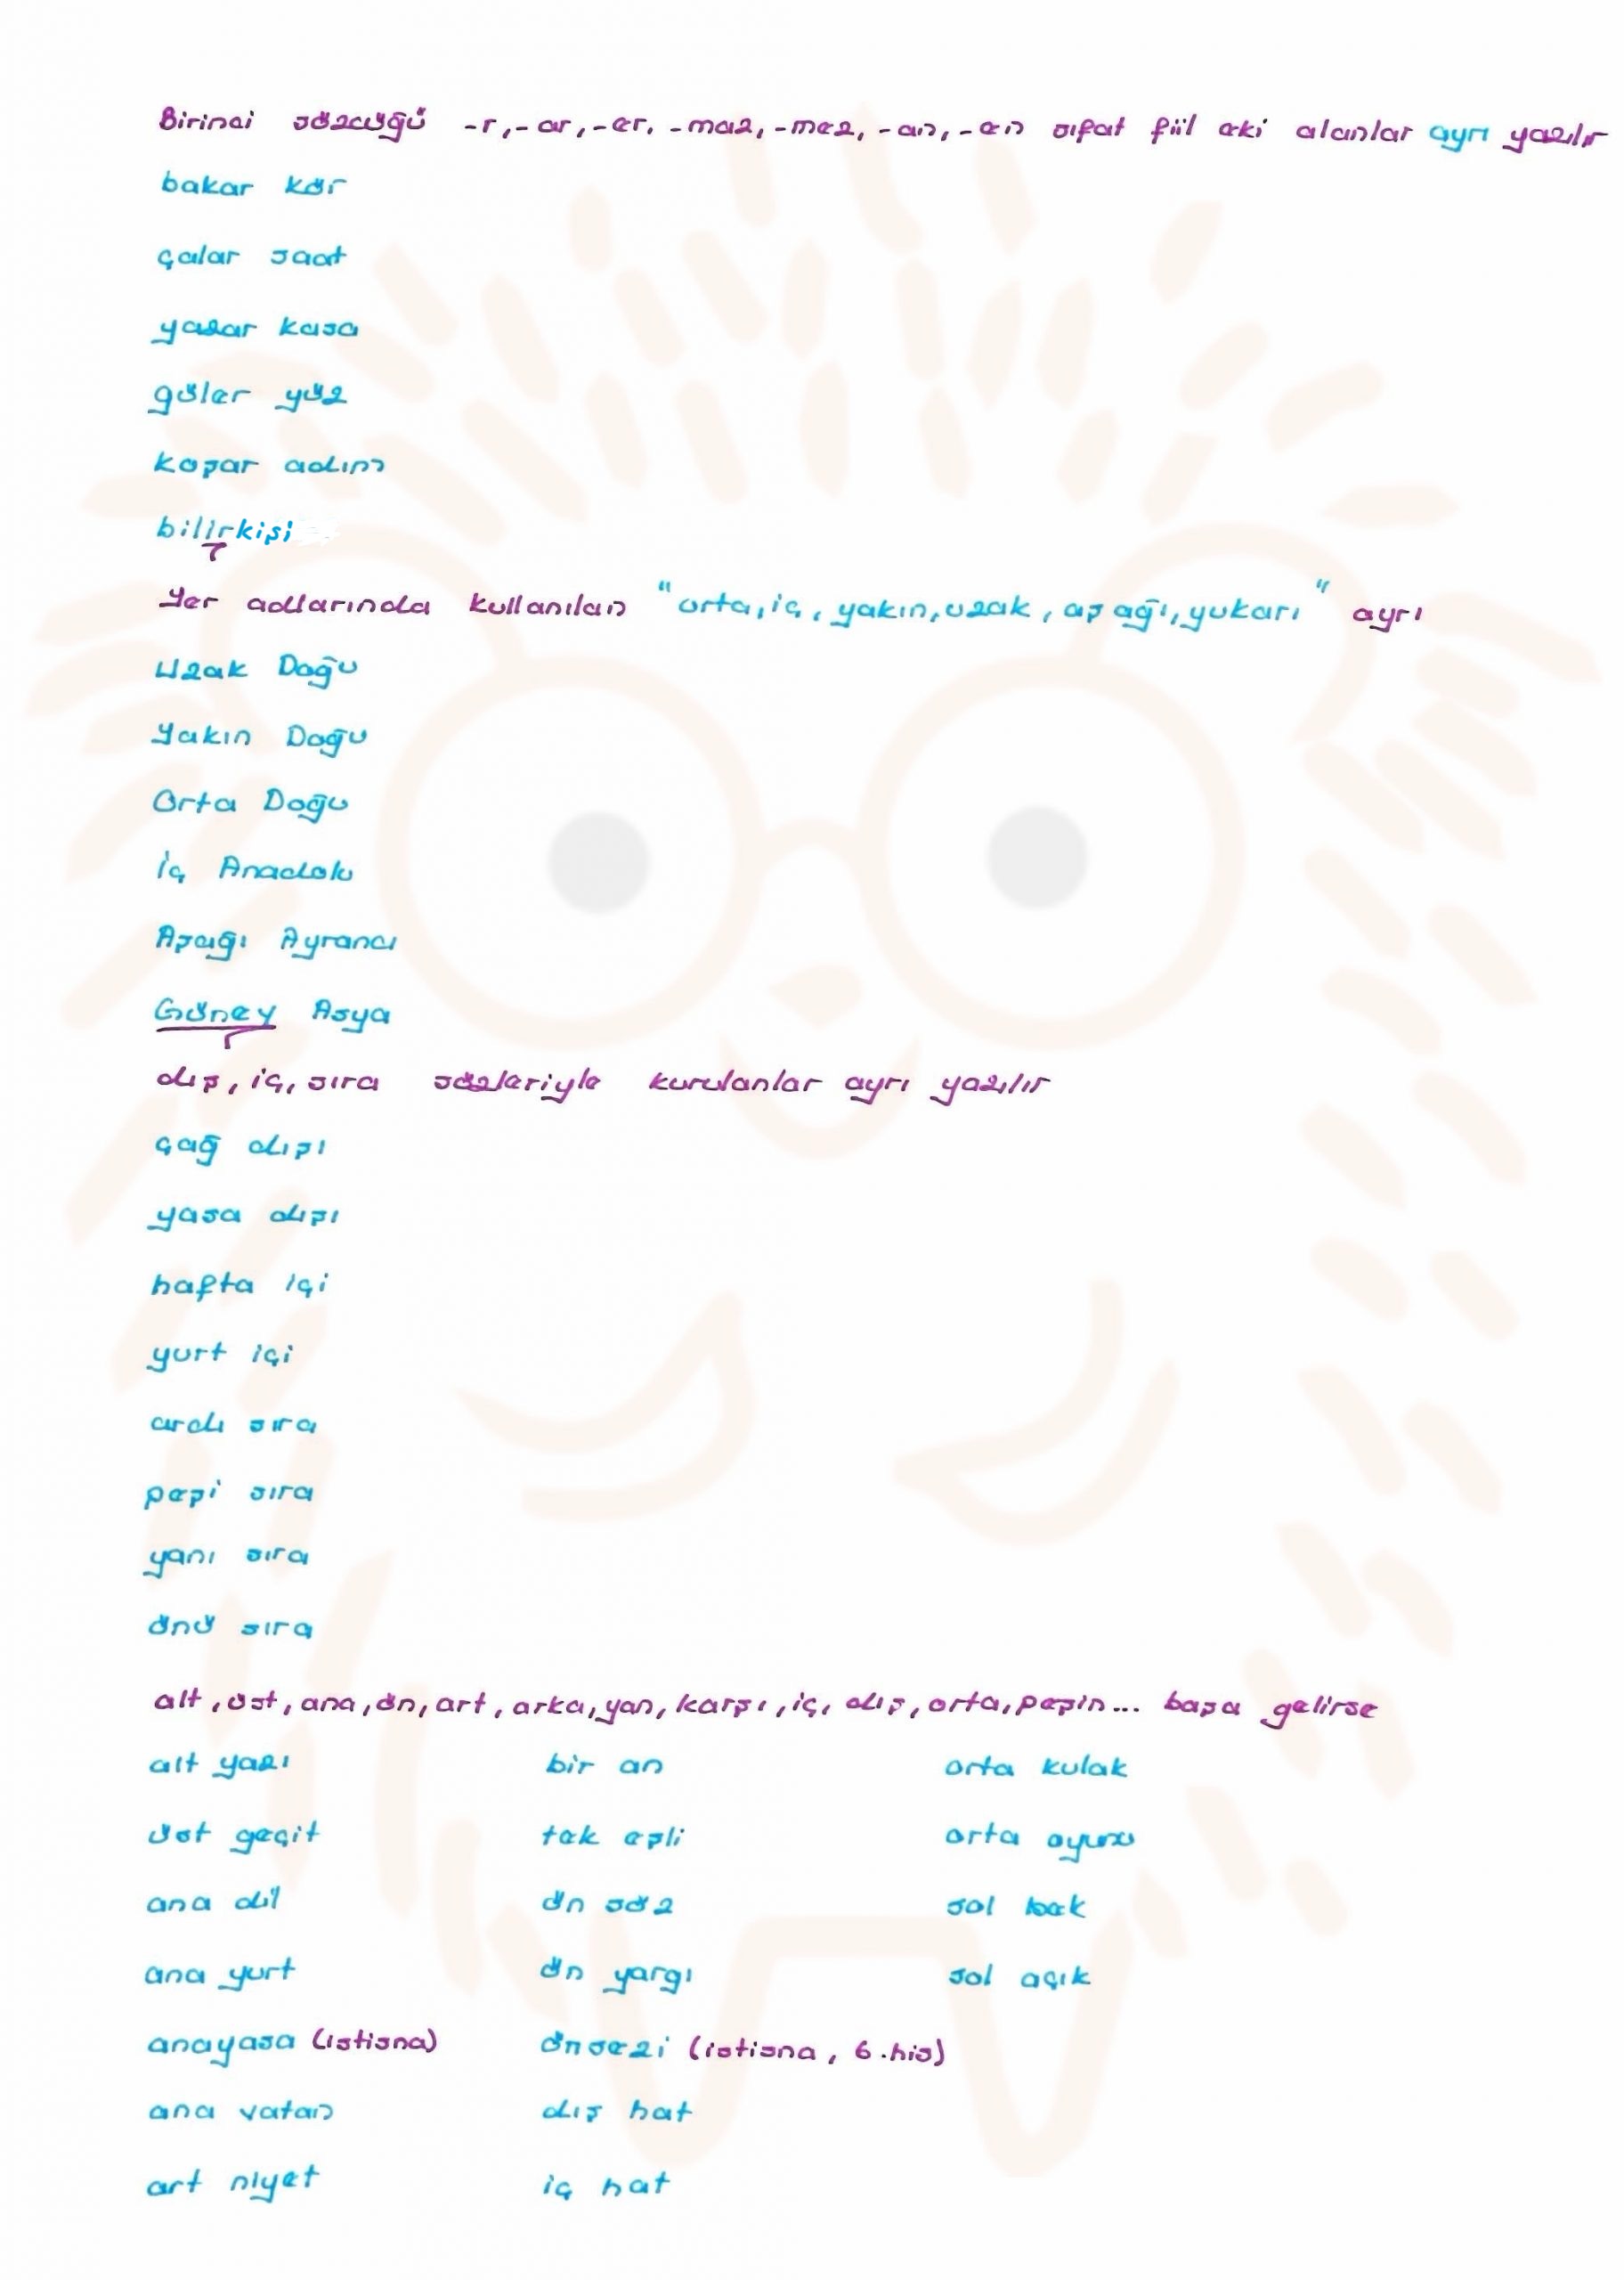 Birinci sözcüğü -r, -ar, -er, -maz, -mez, -an, -en sıfat fiil eki alanlar ayrı yazılır
bakar kör
çalar saat
yazar kasa
güler yüz
koşar adım
bilirkişi
Yer adlarında kullanılan "orta, iç, yakın, uzak, aşağı, yukarı" ayrı
Uzak Doğu
Yakın Doğu
Orta Doğu
İç Anadolu
Aşağı Ayrancı
Güney Asya
dış, iç, sıra sözleriyle kurulanlar ayrı yazılır
çağ dışı
yasa dışı
hafta içi
yurt içi
ardı sıra
peşi sıra
yanı sıra
önü sıra
alt, üst, ana, ön, art, arka, yan, karşı, iç, dış, orta, peşin... başa gelirse
alt yazı bir an orta kulak
üst geçit tek eşli orta oyunu
ana dil ön söz sol bek
ana yurt ön yargı sol açık
anayasa (istisna) önsezi (istisna, 6.his)
ana vatan dış hat
art niyet iç hat